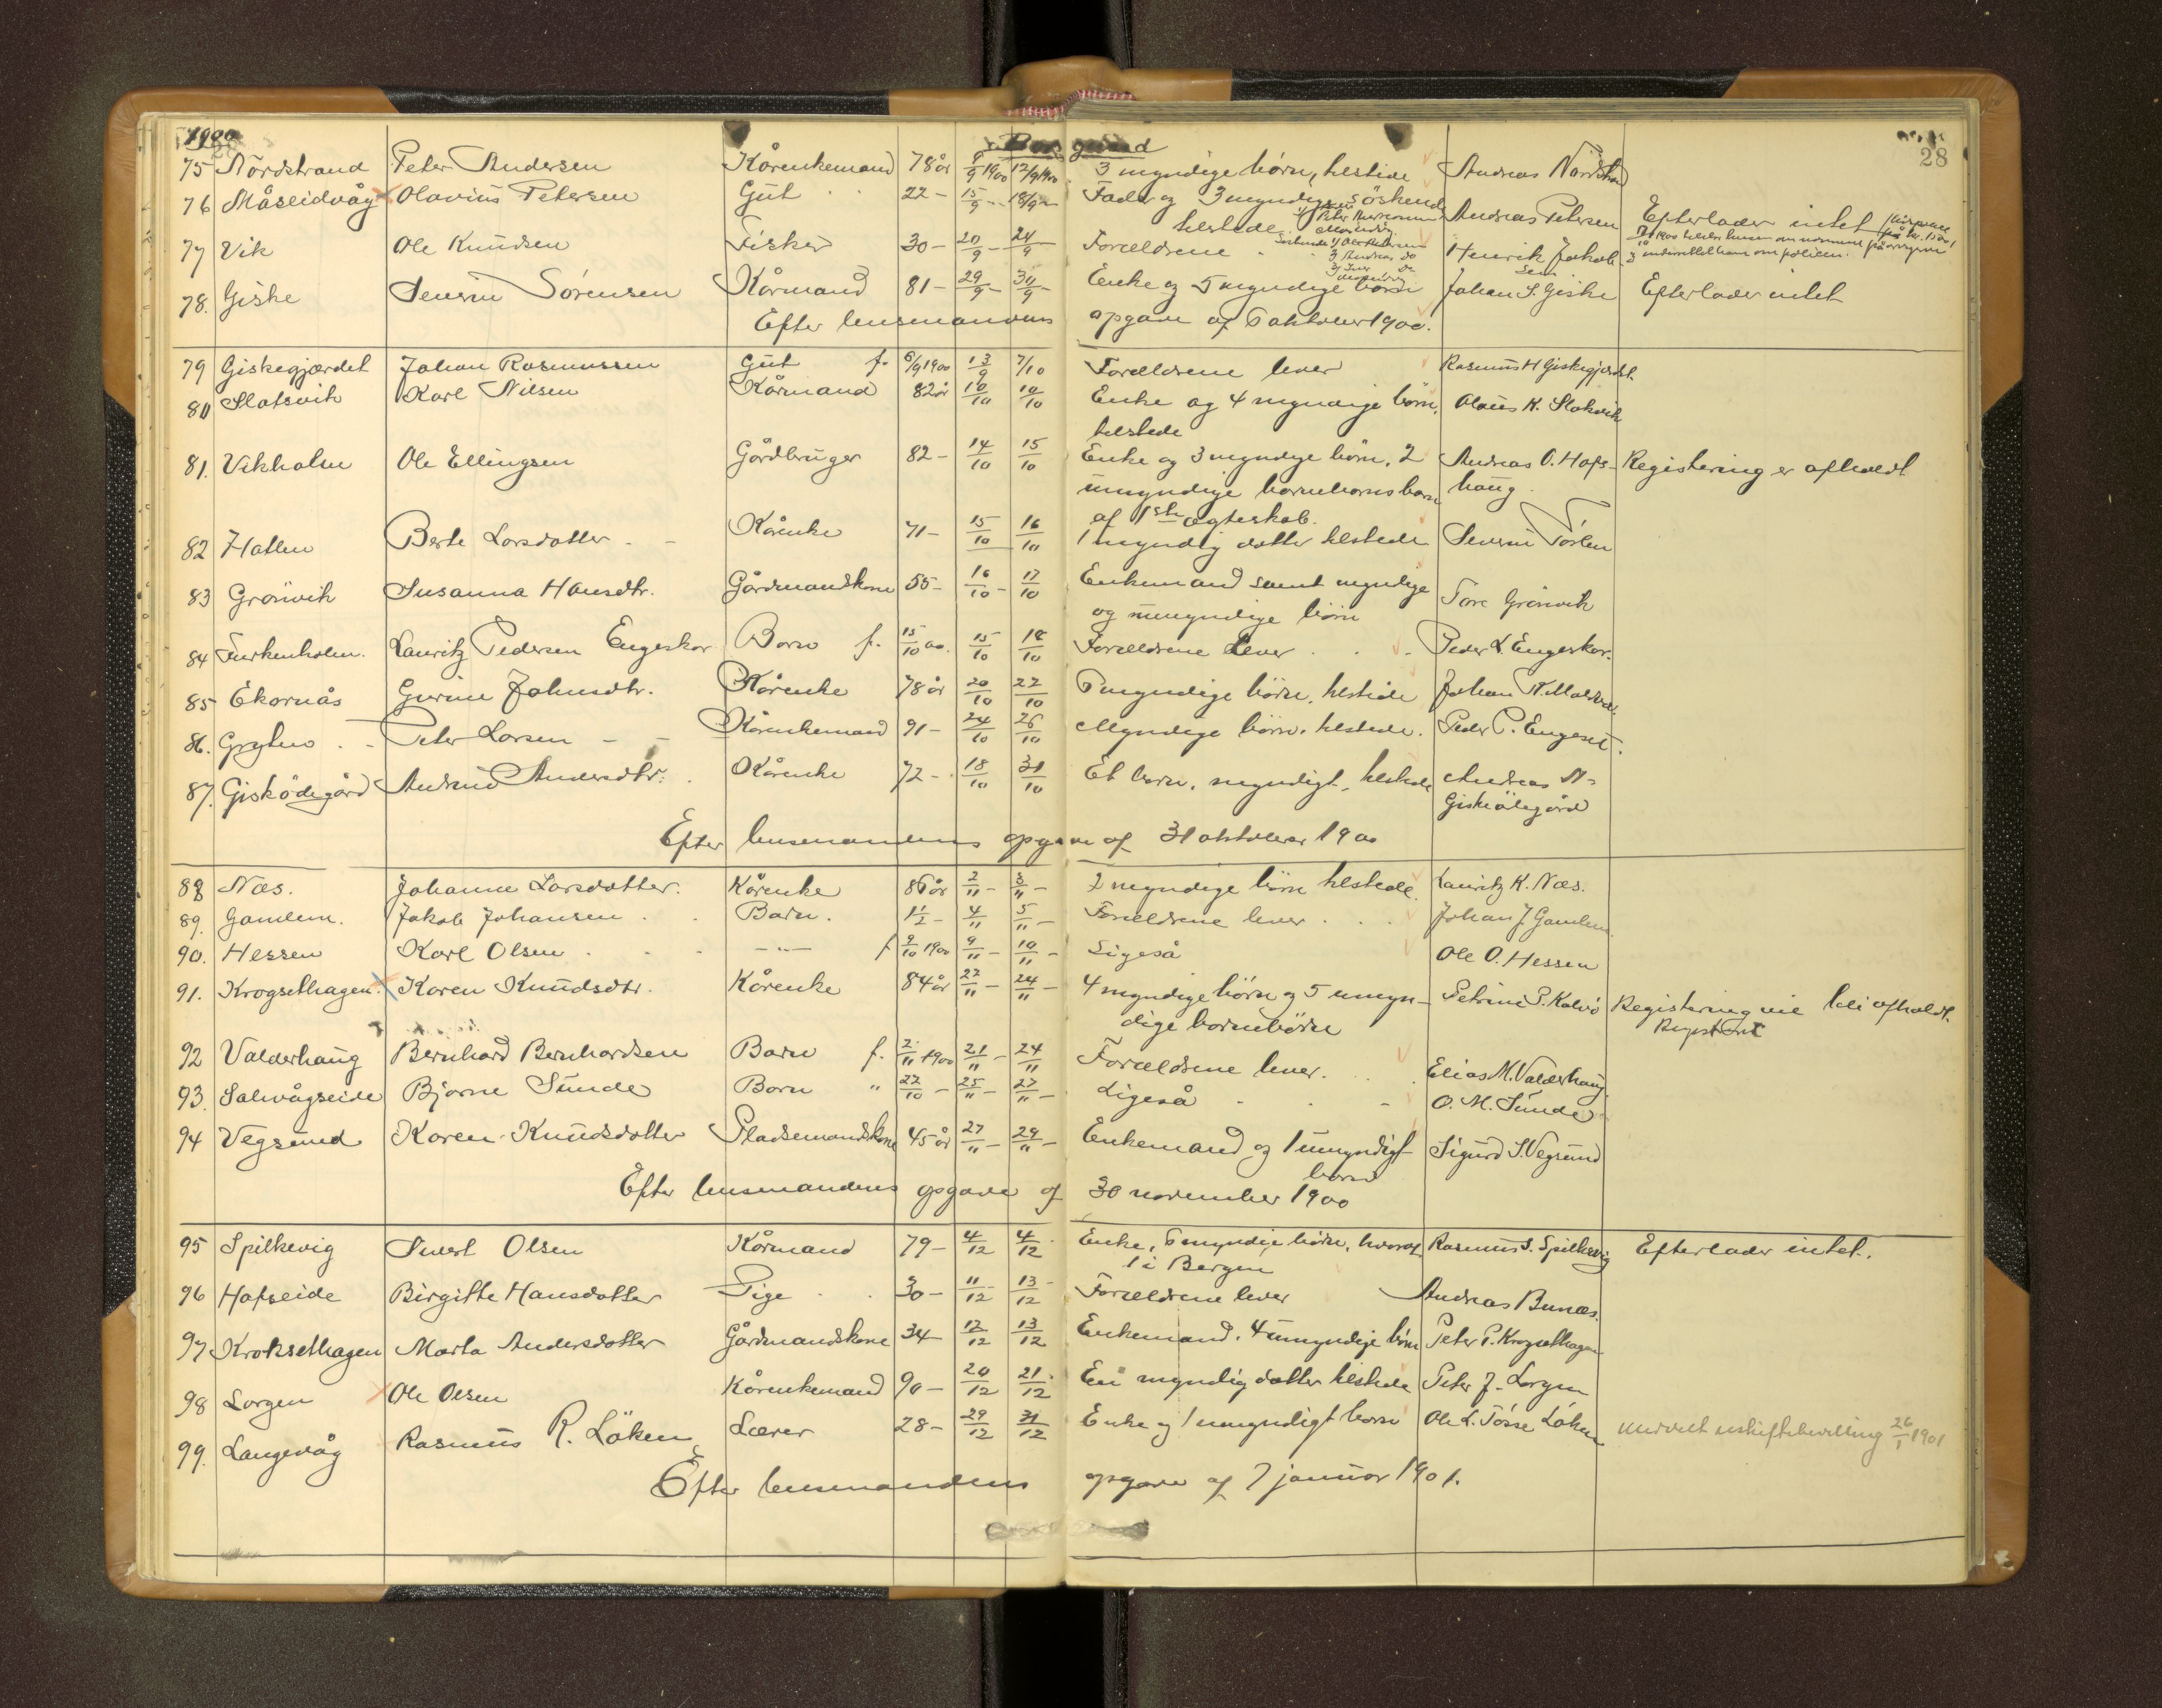 1900
Borgund
28
75 Nördstrand Peter Andersen Kårenkemand 78 år 8/9 1900 12/9 1900 3 myndige börn, tilstede Andreas Nördstrand
76 Måseidvåg Olavius Petersen Gut 22 - 15/9 - 18/9 - Fader og 3 myndige söskende Andreas Petersen Efterlader intet
tilstede
77 Vik Ole Knudsen Fisker 30 - 20/9 - 24/9 Forældrene Henrik Jakob-
sen
78. Giske Severin Sörensen Kårmand 81 - 29/9 - 30/9 - Enke og 5 myndige börn Johan S. Giske Efterlader intet
Efter lensmandens opgave af 6 oktober 1900.
79 Giskegjærdet Johan Rasmussen Gut f. 6/9 1900 13/9 7/10 Forældrene lever Rasmus H Giskegjerdet
80 Slatsvik Karl Nilsen Kårmand 82 år 10/10 10/10 Enke og 4 myndige börn, Olaus K. Slatsvik
tilstede
81. Vikholm Ole Ellingsen Gårdbruger 82 - 14/10 15/10 Enke og 3 myndige börn, 2 Andreas O. Hofs- Registering er afholdt
umyndige barnebarns barn haug
af 1ste ægteskab.
82 Hatlen Berte Larsdatter - - Kårenke 71 - 15/10 16/10 1 myndig datter tilstede Severin Törlen
83 Grönvik Susanna Hansdtr. Gårdmandskone 55 - 16/10 - 17/10 Enkemand samt myndige Tore Grönvik
og umyndige börn
84 Furkenholm. Lauritz Pedersen Engeskar Barn f. 15/10 00. 15/10 18/10 Forældrene lever Peder L. Engeskar.
85 Ekornås Gurine Johnsdtr. Kårenke 78 år 20/10 22/10 6 myndige börn, tilstede Johan K.
86. Gryten Peter Larsen - - Kårenkemand 91 - 24/10 26/10 Myndige börn, tilstede. Peder P. Engeset.
87. Giskødegård Andrine Andersdtr. Kårenke 72 - 18/10 31/10 Et barn, myndigt, tilstede Andreas A-
Giskeødegård
Efter lensmandens opgave af 31 oktober 1900
88 Næs. Johanne Larsdatter. Kårenke 86 år 2/11 - 3/11 - 2 myndige börn tilstede. Lauritz K. Næs.
89. Gamlem. Jakob Johansen Barn. 1 1/2 - 4/11 5/11 - Forældrene lever Johan J. Gamlem.
90. Hessen Karl Olsen - " - f 9/10 1900 9/11 - 10/11 - Ligeså Ole O. Hessen
91. Krogsethagen. Karen Knudsdtr. Kårenke 84 år 22/11 - 24/11 - 4 myndige börn og 5 umyn- Petrine P. Kalvö Registering vil bli afholdt.
dige barnebörn
92 Valderhaug Bernhard Bernhardsen Barn f. 2/11 1900 21/11 - 24/11 Forældrene lever. Elias M. Valderhaug
93. Solevågseide Bjarne Sunde Barn " 22/10 - 25/11 - 27/11 - Ligeså - - O. M. Sunde
94 Vegsund Karen Knudsdatter Pladsemandskone 45 år 27/11 - 29/11 - Enkemand og 1 umyndigt Sigurd S. Vegsund
barn
Efter lensmandens opgave af 30 november 1900
95 Spilkevig Sivert Olsen Kårmand 79 - 4/12 4/12 Enke, 6 myndige börn, hvoraf Rasmus S. Spilkevig Efterlader intet.
1 i Bergen
96 Hofseide Birgitte Hansdatter Pige 30 - 11/12 13/12 Forældrene lever Andreas Bunæs.
97 Kroksethagen Marta Andersdatter Gårdmandskone 34 12/12 13/12 Enkemand. 4 umyndige börn Peter P. Krogsethagen
98 Lorgen Ole Olsen Kårenkemand 90 - 20/12 21/12 En myndig datter tilstede Peter J. Lorgen
99. Langevåg Rasmus R. Löken Lærer 28 - 29/12 31/12 Enke og 1 umyndigt barn Ole L. Tösse Löken meddelt uskiftebevilling 26/1 1901
Efter lensmandens opgave af 7 januar 1901.